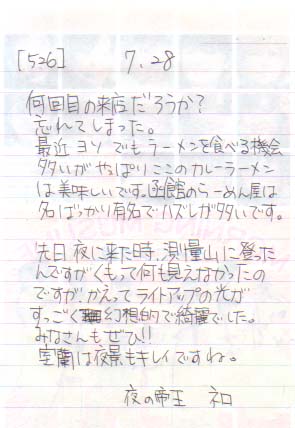 [526] 7.28
何回目の来店だろうか?
忘れてしまった。
最近ヨソでもラーメンを食べる機会
多いがやっぱりここのカレーラーメン
は美味しいです。函館のらーめん屋は
名ばっかり有名でハズレが多いです。
先日、夜に来た時、測量山に登った
んですがくもって何も見えなかったの
ですが、かえってライトアップの光が
すっごく幻想的で綺麗でした。
みなさんもぜひ!!
室蘭は夜景もキレイですね。
夜の帝王